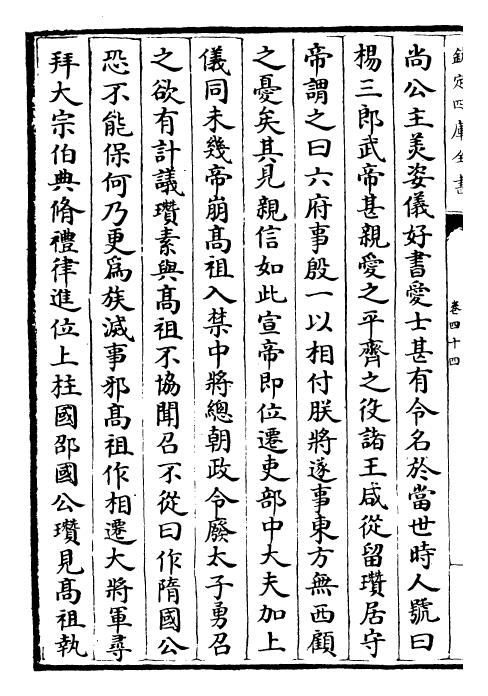 欽定四庫全書
卷四十四
尚公主美姿儀好書愛士甚有令名於當世時人號曰
楊三郎武帝甚親愛之平齊之役諸王咸從留瓚居守
帝謂之曰六府事殷一以相付朕將遂事東方無西顧
之憂矣其見親信如此宣帝即位遷吏部中大夫加上
儀同未幾帝崩髙祖入禁中將總朝政令廢太子勇召
之欲有計議瓚素與髙祖不協聞召不從曰作隋國公
恐不能保何乃更為族滅事邪髙祖作相遷大將軍尋
拜大宗伯典脩禮律進位上柱國邵國公瓚見髙祖執